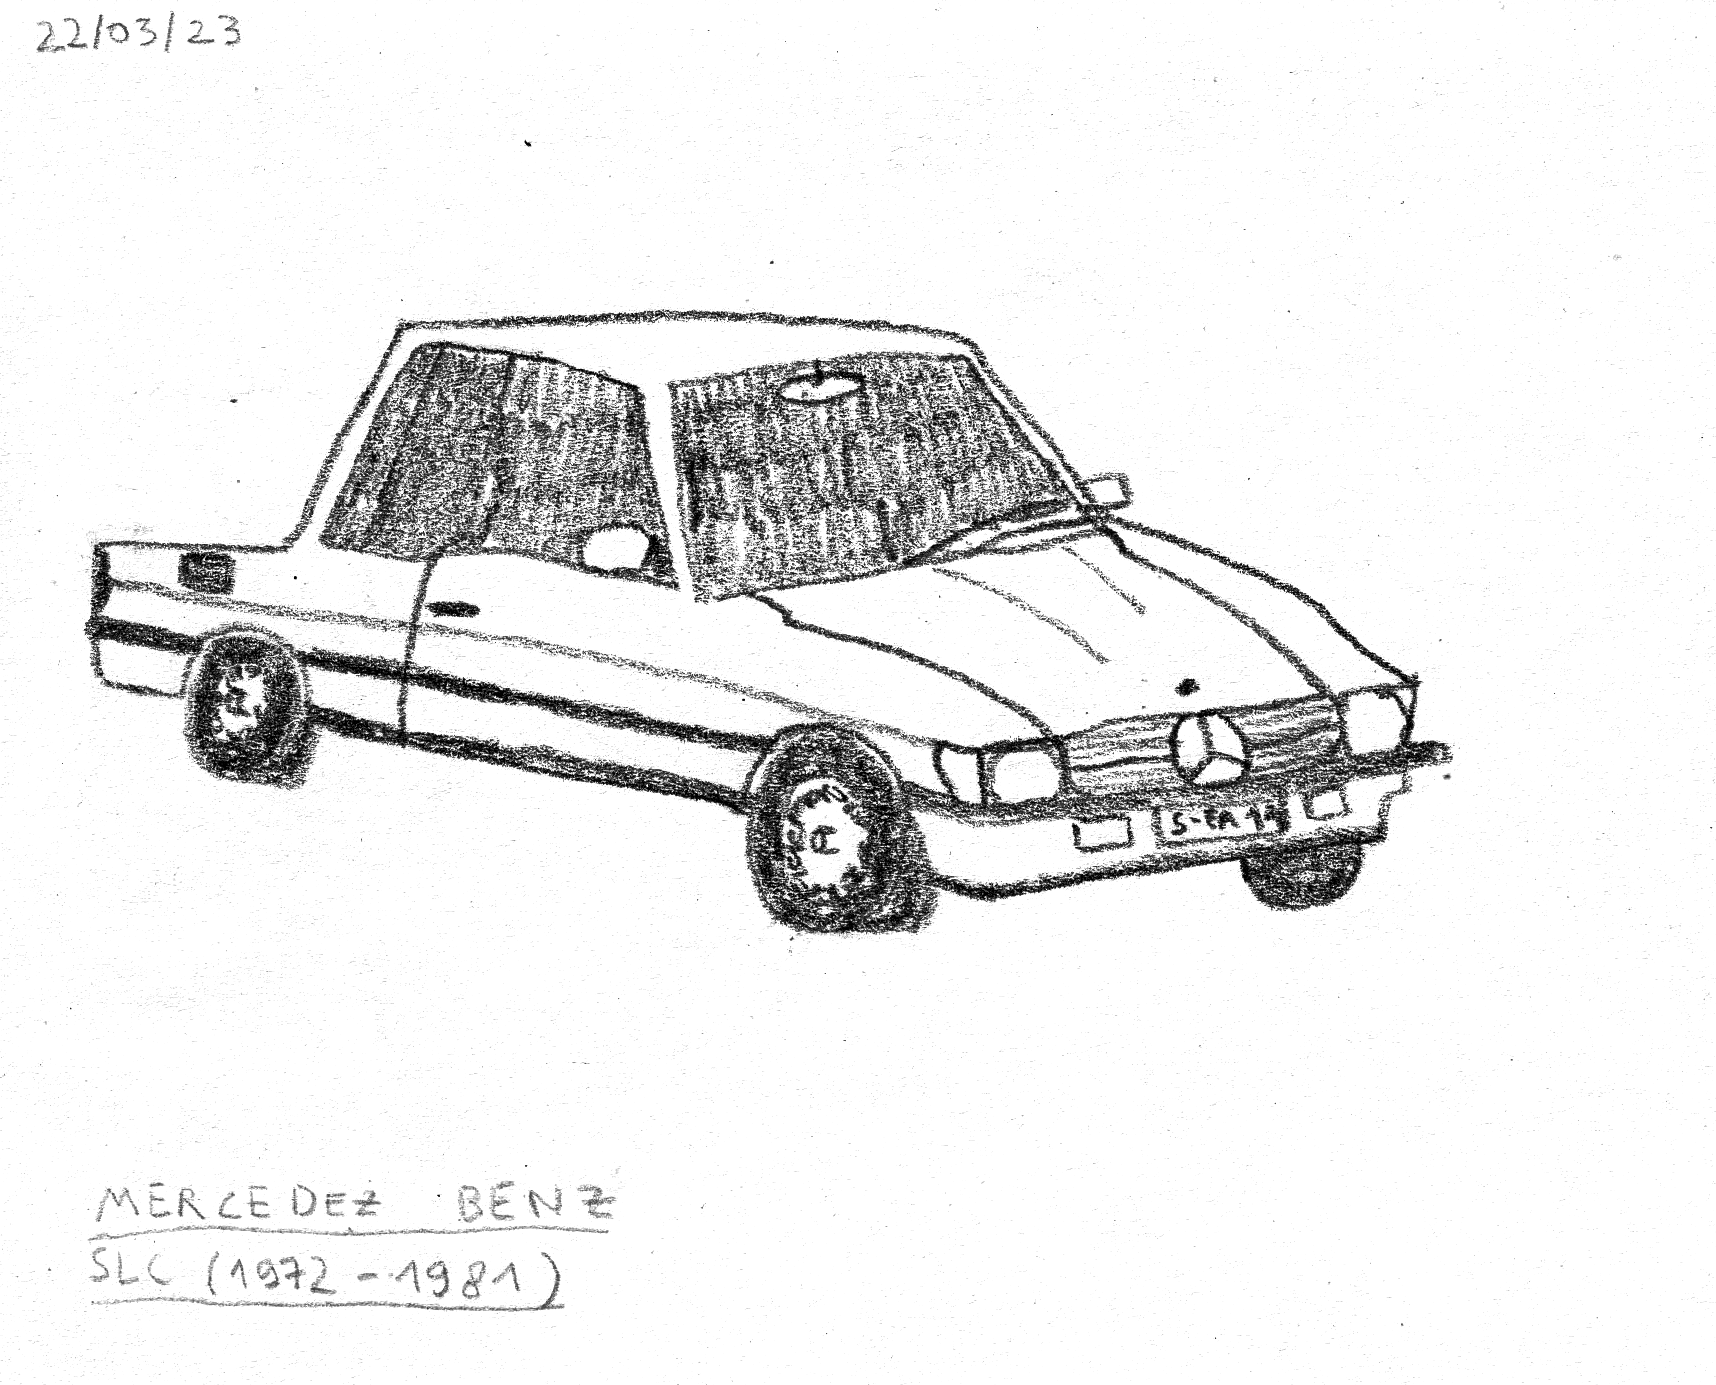 22/03/23
S-EA 14
MERCEDEZ BENZ
SLC (1972-1981)